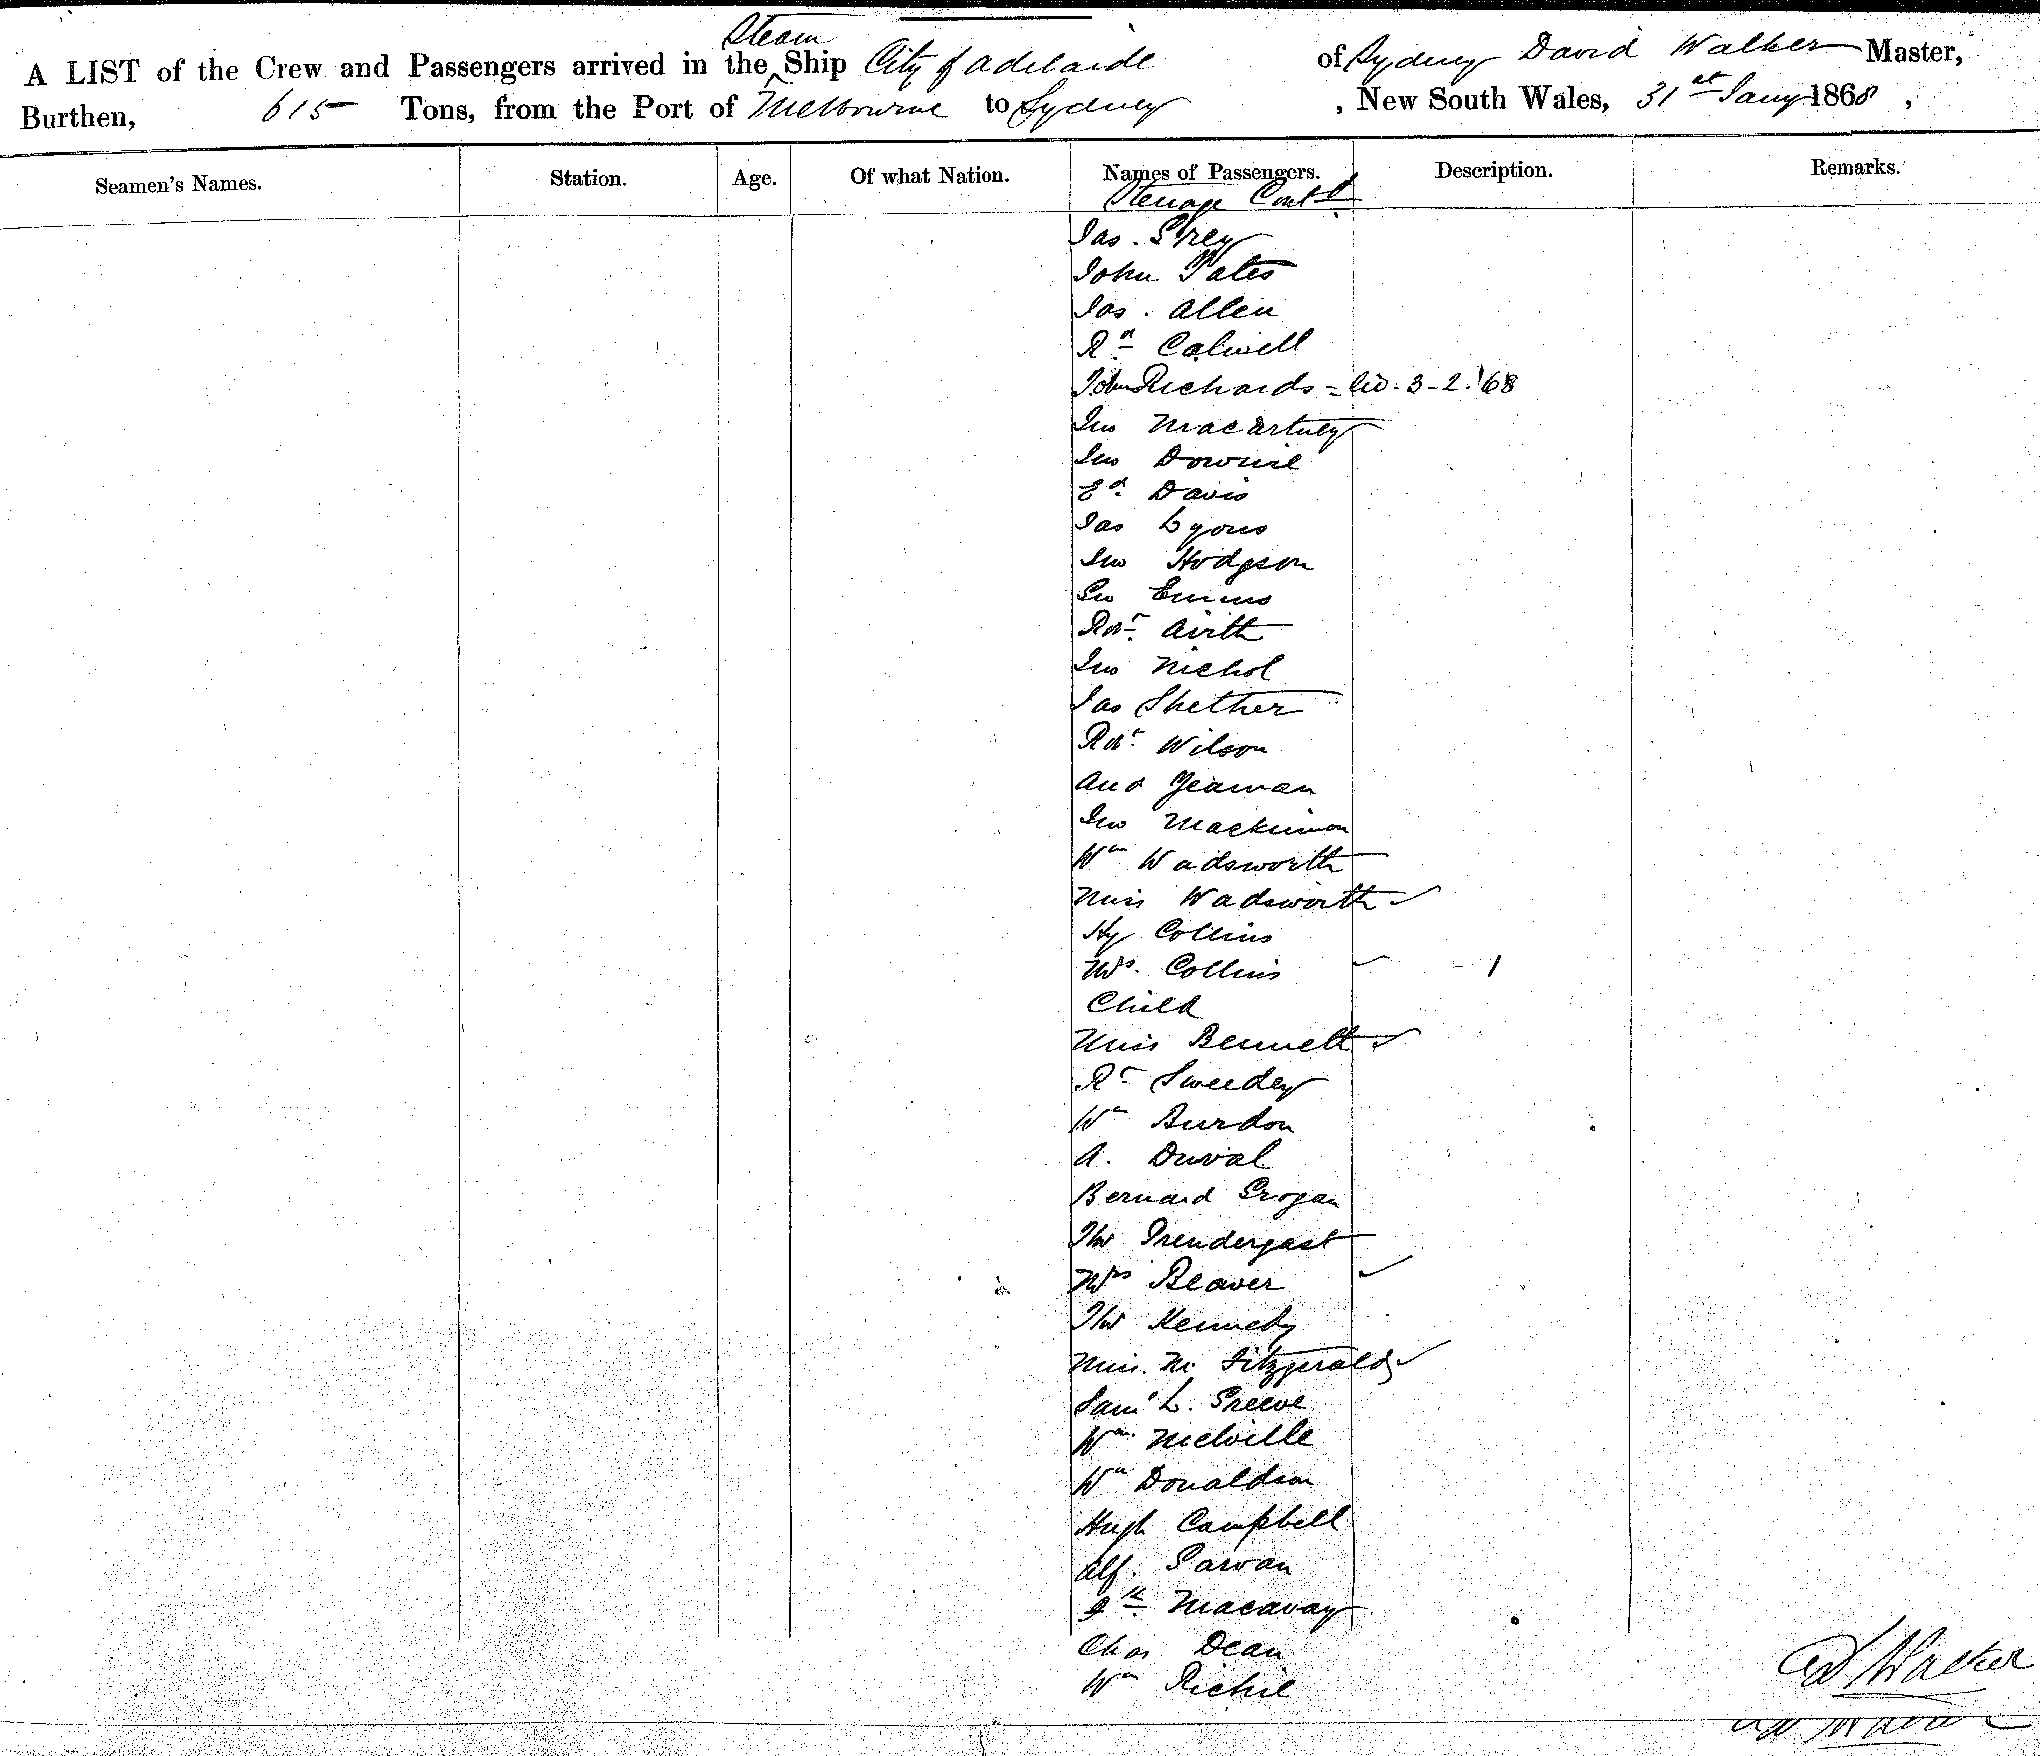 Steam
A LIST of the Crew and Passengers arrived in the Ship City of Adelaide of Sydney David Walker Master,
Burthen, 615 Tons, from the Port of Melbourne to Sydney , New South Wales, 31st Jany 1868 ,
Seamen's Names. Station. Age. Of what Nation. Names of Passengers. Description. Remarks.
Steerage Contd
Jas. Grey
John Yates
Jas. Allen
Rd Calwell
John Richards - 3-2-'68
Jno Macartney
Jno Downie
Ed. Davis
Jas Lyons
Jno Hodgson
Geo Emms
Robt. Airth
Jno Nichol
Jas Shether
Robt. Wilson
And Yeaman
Jno Mackinnon
Wm Wadsworth
Miss Wadsworth
Hy Collins
Mrs. Collins 1
Child
Miss Bennett
Rt Sweeday
Wm Burdon
A. Duval
Bernard Grogan
Tho Prendergast
Mrs Beaver
Tho Kennedy
Miss. M. Fitzgerald
Saml L. Greeve
Wm Melville
Wm Donaldson
Hugh Campbell
Alf. Garvan
Macavay
Chas Dean
Wm Richie
D Walker